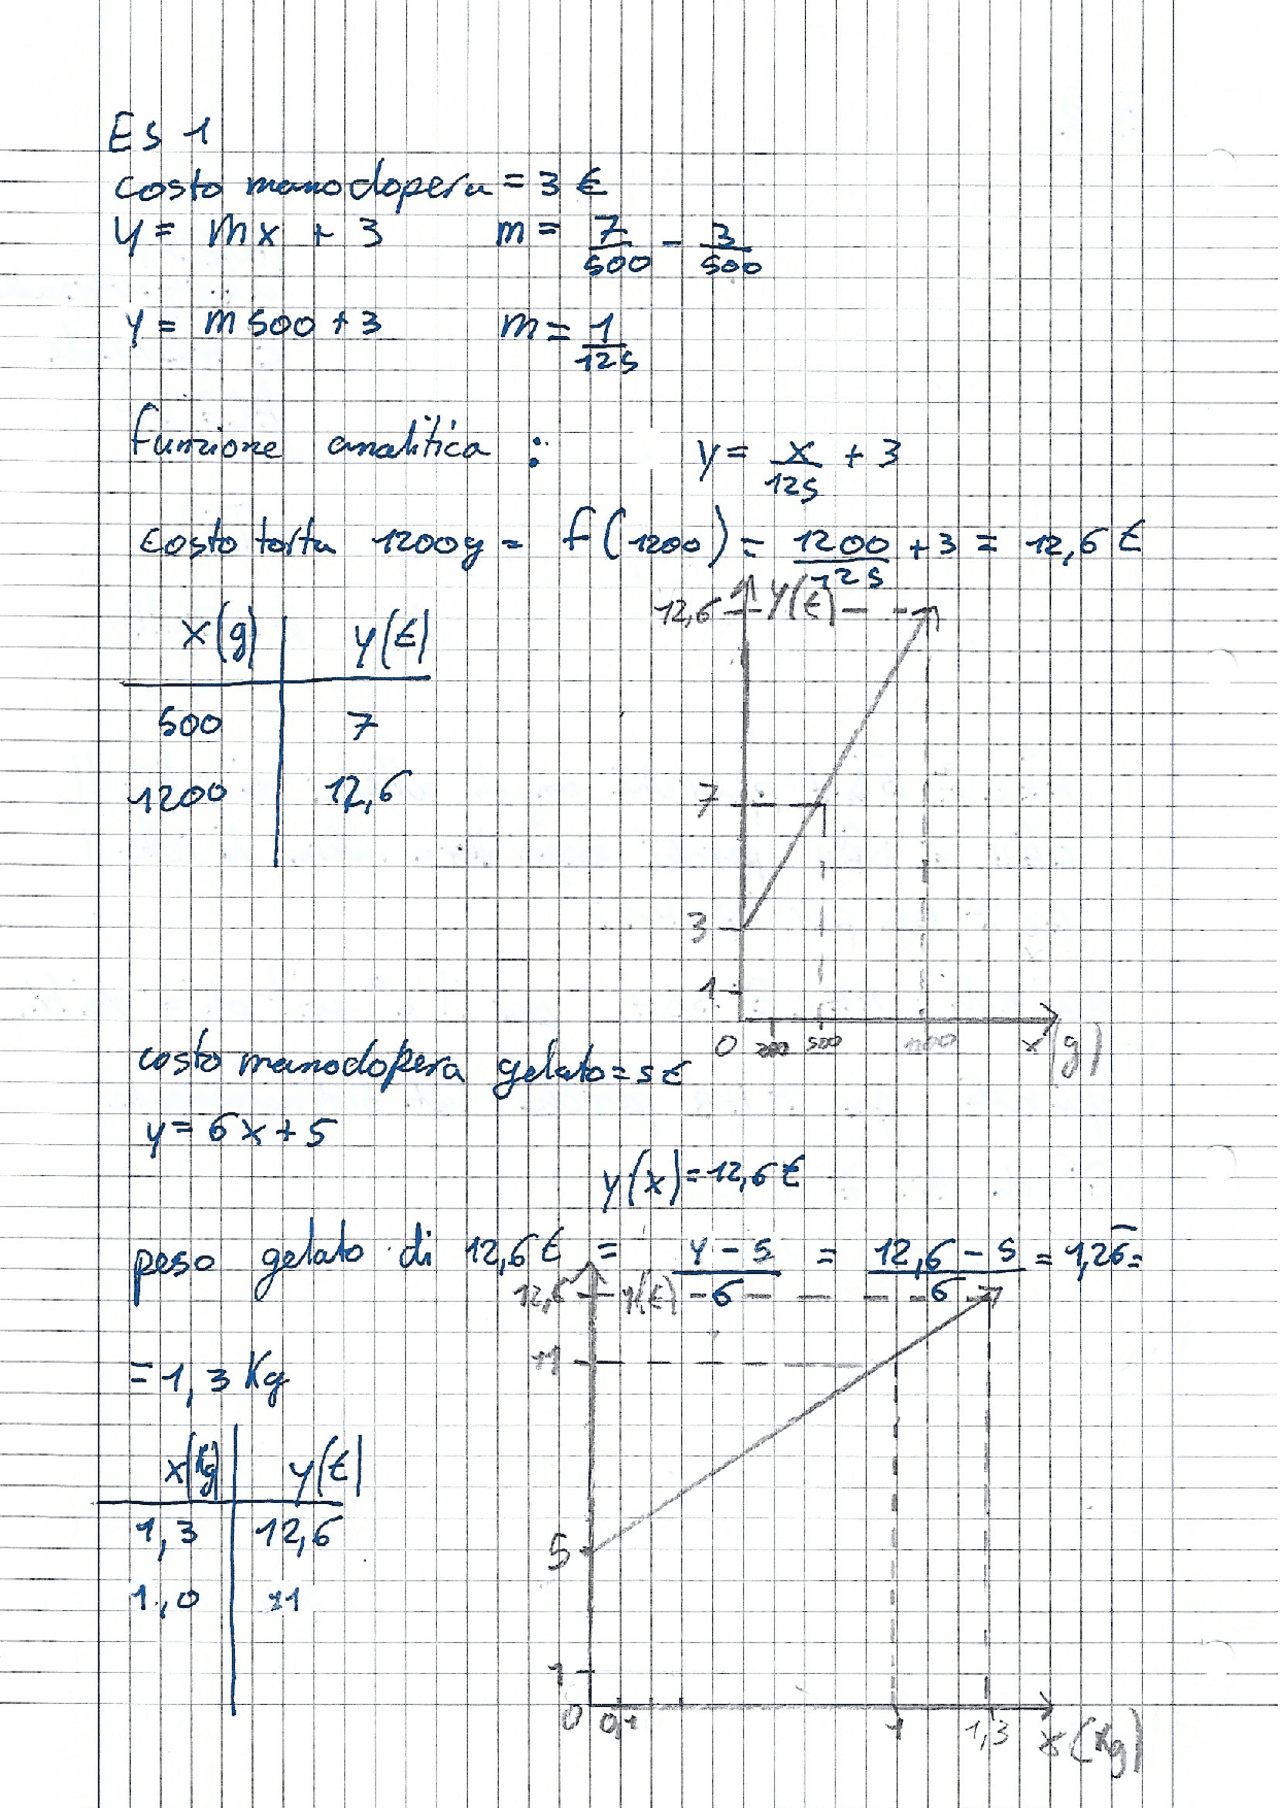 Es 1
costo manodopera = 3 €
y = mx + 3 m = 7/500 - 3/500
y = m 500 + 3 m = 1/125
funzione analitica : y = x/125 + 3
costo torta 1200g = f(1200) = 1200/125 + 3 = 12,6 €
x(g) y(€)
500 7
1200 12,6
12,6 y(€)
7
3
1
0 200 500 1200 x(g)
costo manodopera gelato = 5€
y = 6x + 5
y(x) = 12,6 €
peso gelato di 12,6€ = y - 5/6 = 12,6 - 5/6 = 1,26̅ =
= 1,3 Kg
x(Kg) y(€)
1,3 12,6
1,0 11
12,6 y(€)
11
5
1
0 0,1 1 1,3 x(Kg)